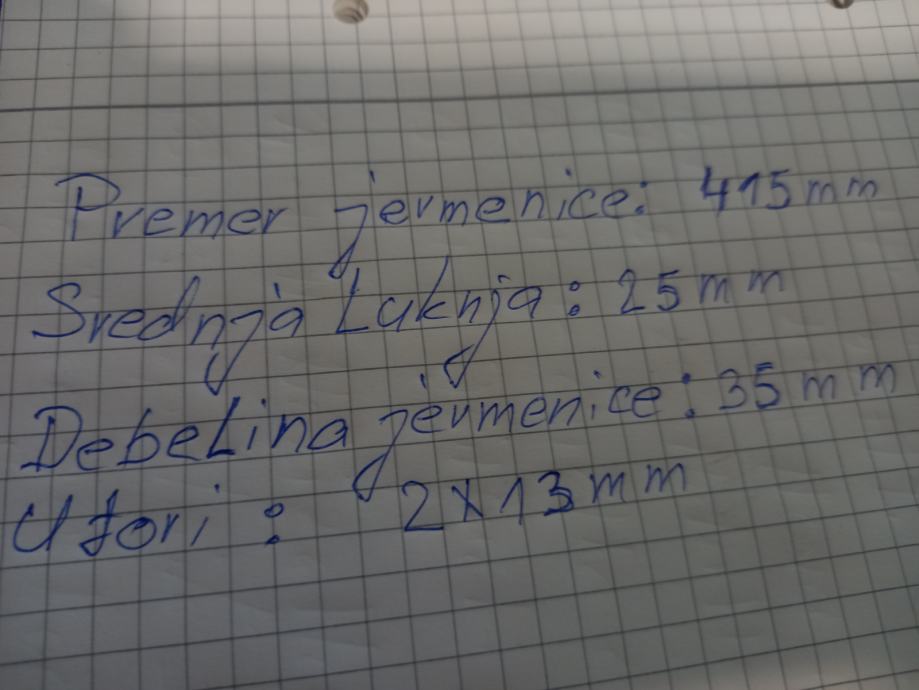 Premer jermenice: 415mm
Srednja Luknja: 25mm
DebeLina jermenice: 35mm
Utori: 2x13mm